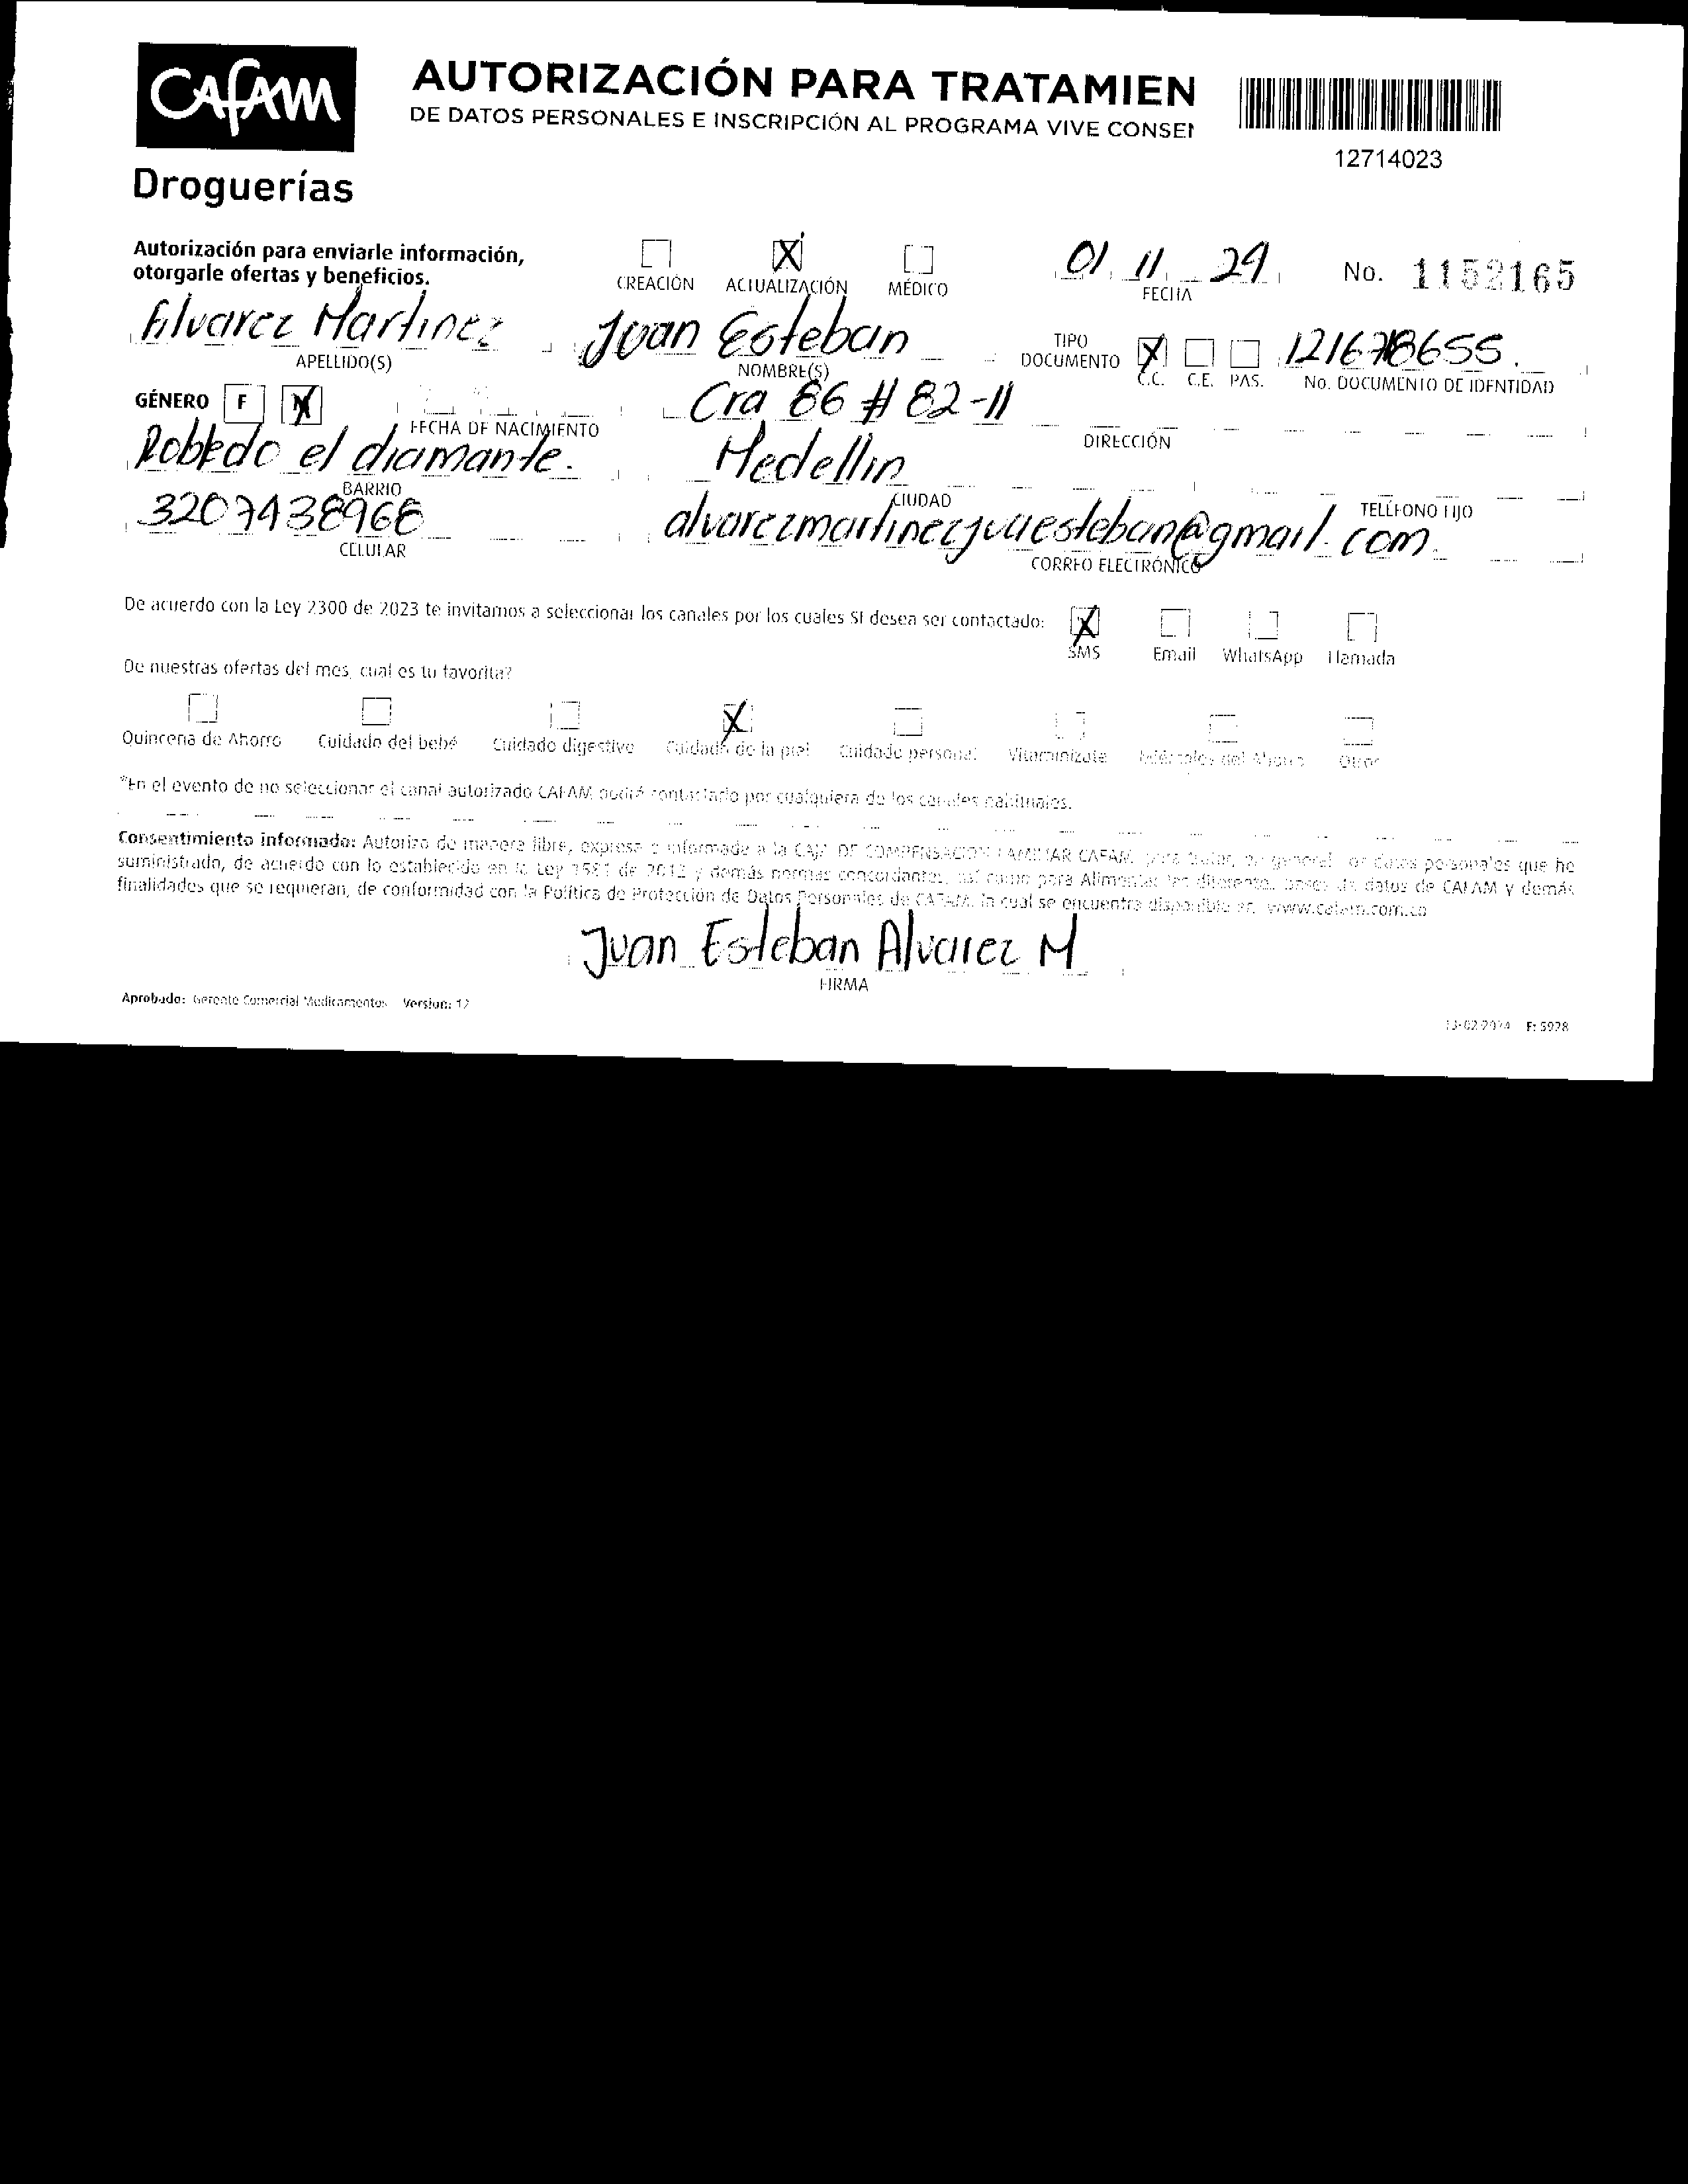 CAFAM
AUTORIZACIÓN PARA TRATAMIEN
DE DATOS PERSONALES E INSCRIPCIÓN AL PROGRAMA VIVE CONSEN
12714023
Droguerías
Autorización para enviarle información,
otorgarle ofertas y beneficios.
CREACIÓN X ACTUALIZACIÓN MÉDICO
01 11 24
FECHA
No. 1152165
Alvarez Martinez Juan Esteban
APELLIDO(S) NOMBRE(S)
TIPO DOCUMENTO X C.C. C.E. PAS.
No. DOCUMENTO DE IDENTIDAD
GÉNERO F M
FECHA DE NACIMIENTO
Cra 86 # 82-11
DIRECCIÓN
Robledo el diamante. Medellin
BARRIO CIUDAD TELÉFONO FIJO
3207438968
CELULAR
alvarezmartinezjuaesteban@gmail.com
CORREO ELECTRÓNICO
De acuerdo con la Ley 2300 de 2023 te invitamos a seleccionar los canales por los cuales SI desea ser contactado:
X SMS Email WhatsApp Llamada
De nuestras ofertas del mes, cual es tu favorita?
Quincena de Ahorro Cuidado del bebé Cuidado digestivo X Cuidado de la piel Cuidado personal Vitaminízate Miércoles del Ahorro Otros
*En el evento de no seleccionar el canal autorizado CAFAM podrá contactarlo por cualquiera de los canales habituales.
Consentimiento informado: Autorizo de manera libre, expresa e informada a la CAJA DE COMPENSACION FAMILIAR CAFAM, para tratar, en general, los datos personales que he
suministrado, de acuerdo con lo establecido en la Ley 1581 de 2012 y demás normas concordantes, así como para Alimentar las diferentes bases de datos de CAFAM y demás
finalidades que se requieran, de conformidad con la Política de Protección de Datos Personales de CAFAM, la cual se encuentra disponible en, www.cafam.com.co
Juan Esteban Alvarez M
FIRMA
Aprobado: Gerente Comercial Medicamentos Version: 12
13-02-2024 F: 5928